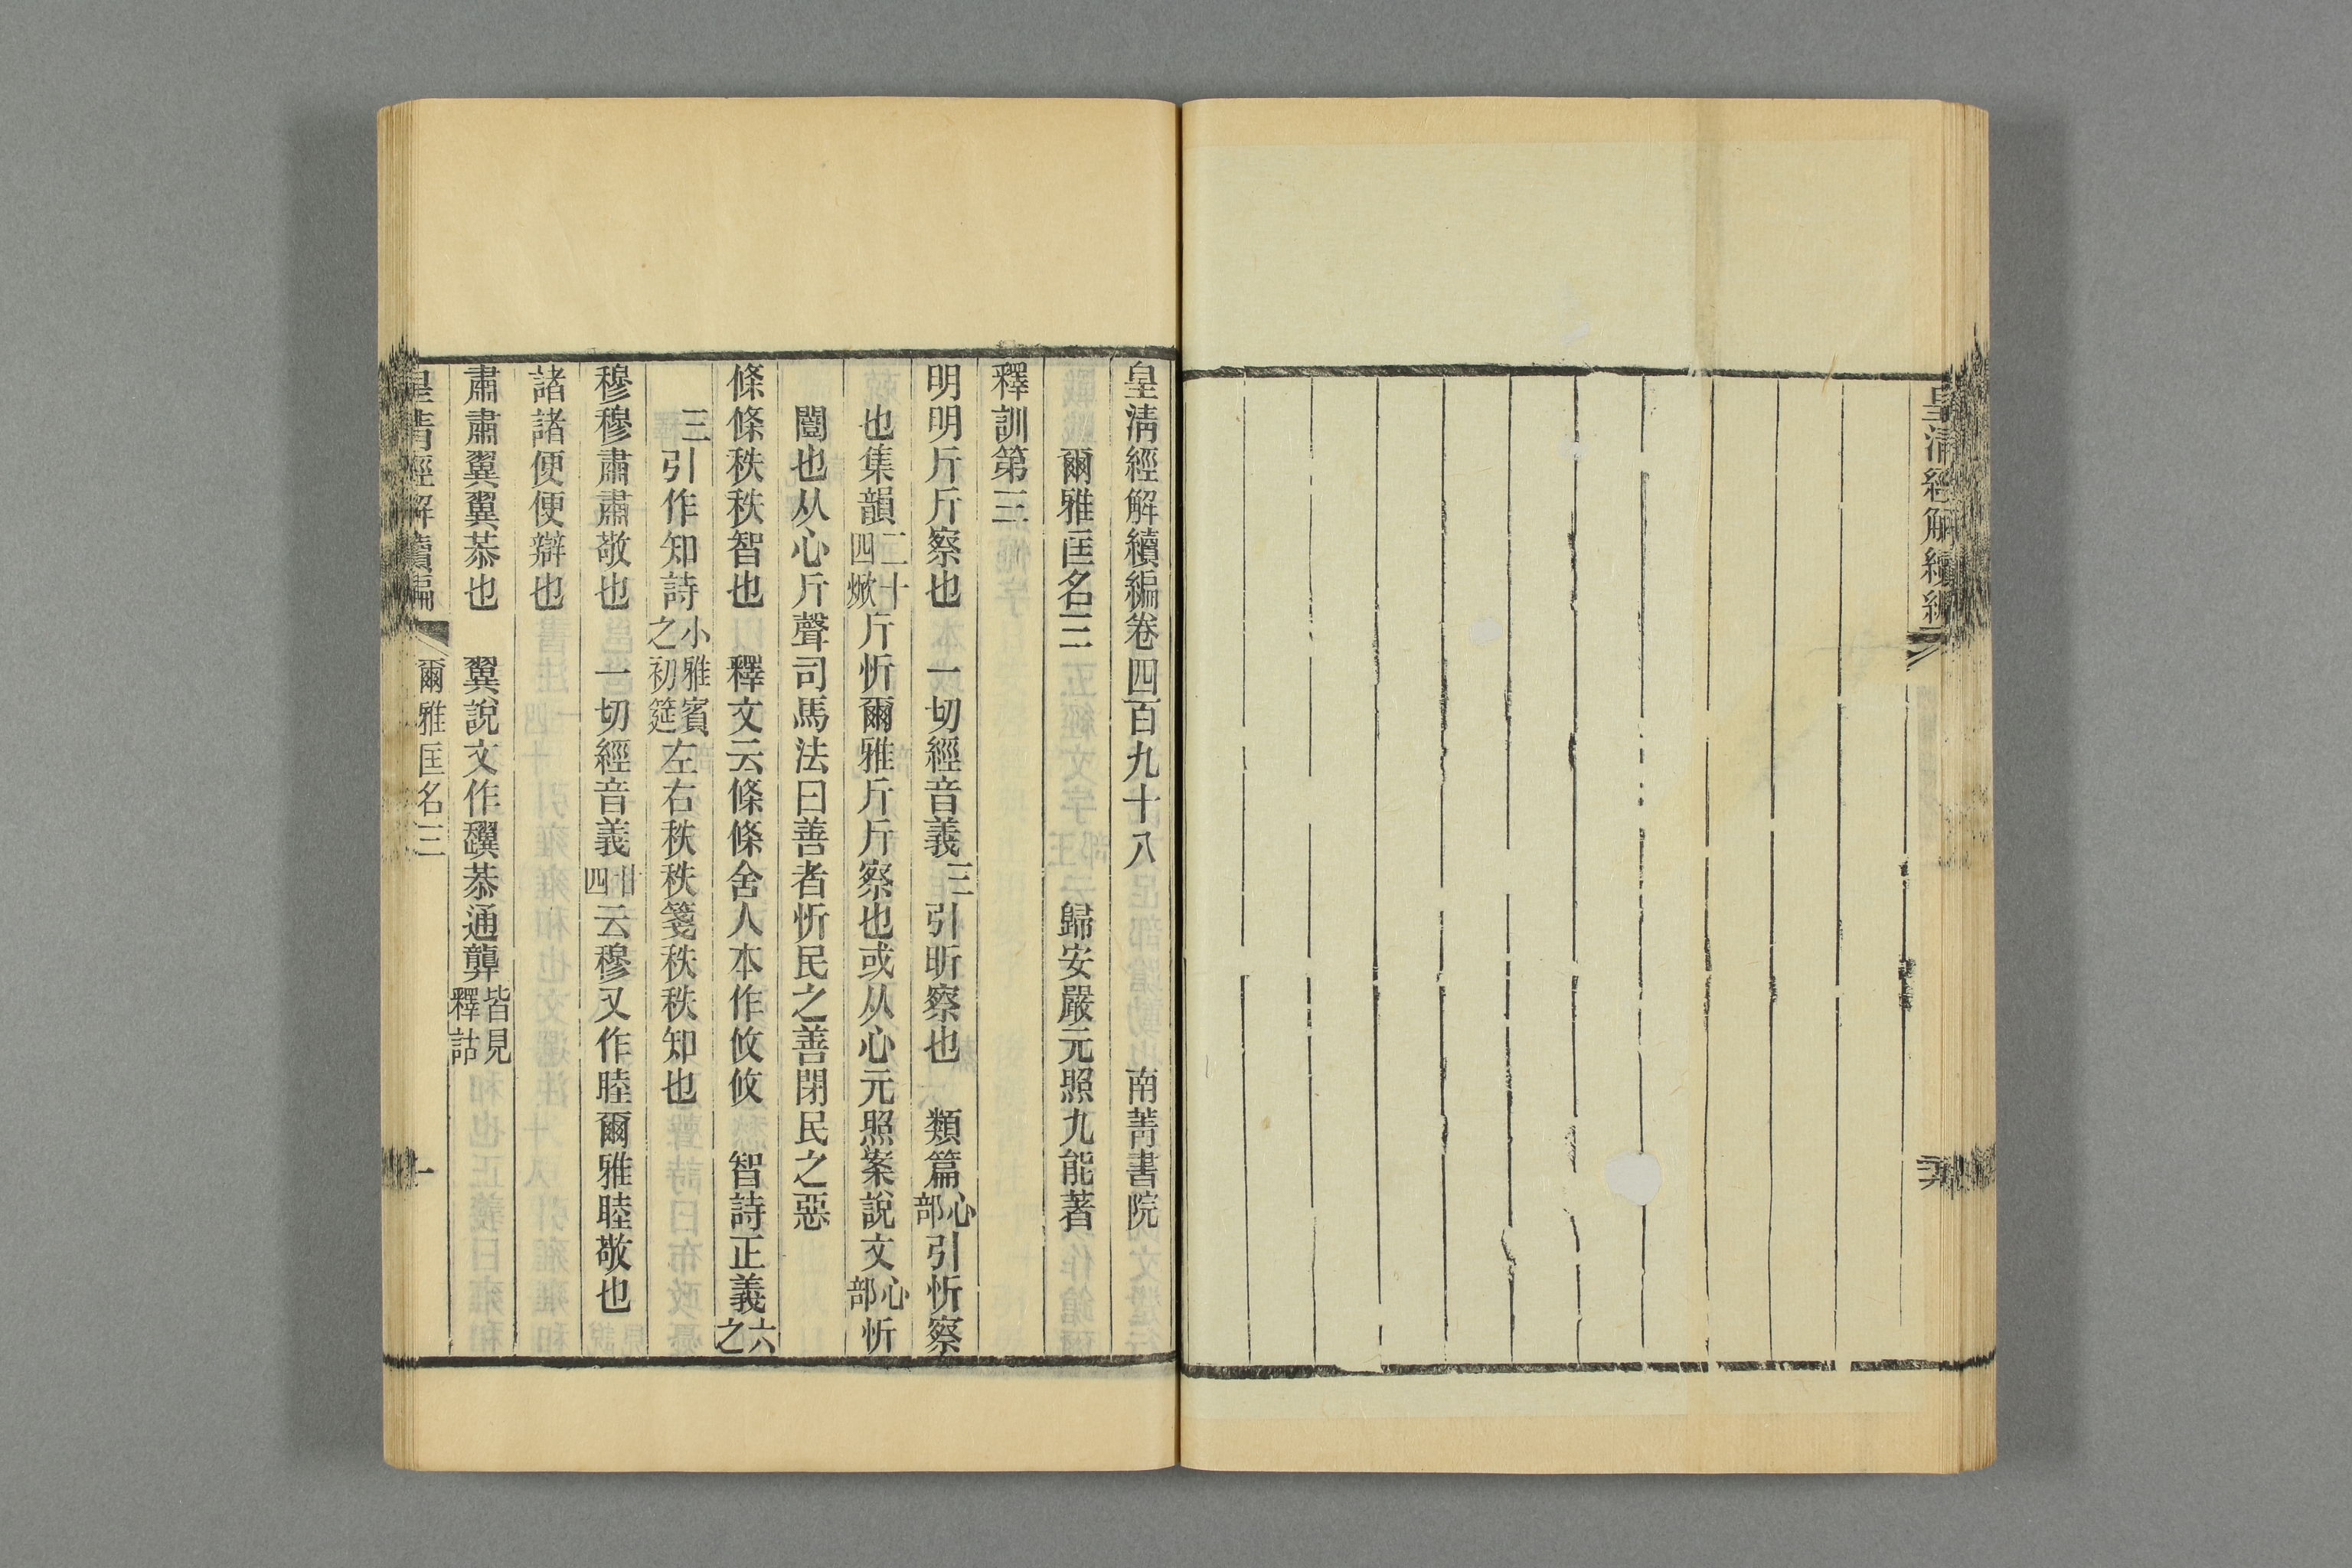 皇清經解續編
皇清經解續編卷四百九十八 南菁書院
爾雅匡名三 歸安嚴元照九能著
釋訓第三
明明斤斤察也 一切經音義三引昕察也 類篇心部引忻察
也集韻二十四焮斤忻爾雅斤斤察也或从心元照案說文心部忻
闓也从心斤聲司馬法曰善者忻民之善閉民之惡
條條秩秩智也 釋文云條條舍人本作攸攸 智詩正義六之
三引作知詩小雅賓之初筵左右秩秩箋秩秩知也
穆穆肅肅敬也 一切經音義廿四云穆又作睦爾雅睦敬也
諸諸便便辯也
肅肅翼翼恭也 翼說文作䙴恭通龔皆見釋詁
皇清經解續編 爾雅匡名三 一